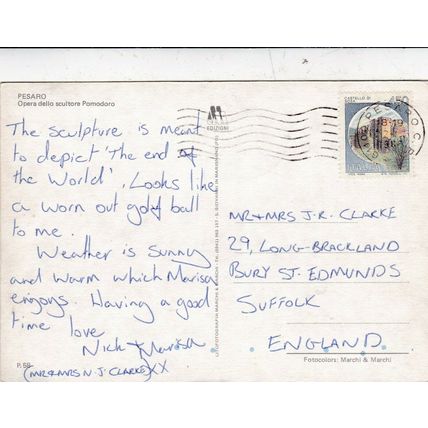 PESARO
Opera dello scultore Pomodoro
The sculpture is meant
to depict 'The end of
the World'. Looks like
a worn out golf ball
to me.
Weather is sunny
and warm which Marisa
enjoys. Having a good
time love
Nick + Marisa
(MR + MRS N.J. CLARKE) XX
P. 58
EDIZIONI
CASTELLO DI
450
PESARO
MR + MRS J.R. CLARKE
29, LONG-BRACKLAND
BURY ST. EDMUNDS
SUFFOLK
ENGLAND.
Fotocolors: Marchi & Marchi